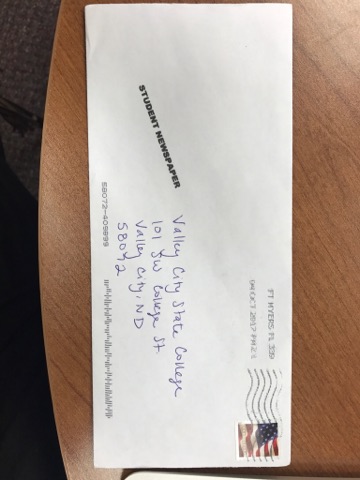 FT MYERS FL 339
04 OCT 2017 PM 2 L
STUDENT NEWSPAPER
Valley City State College
101 SW College St.
Valley City, ND
58072
58072-409899